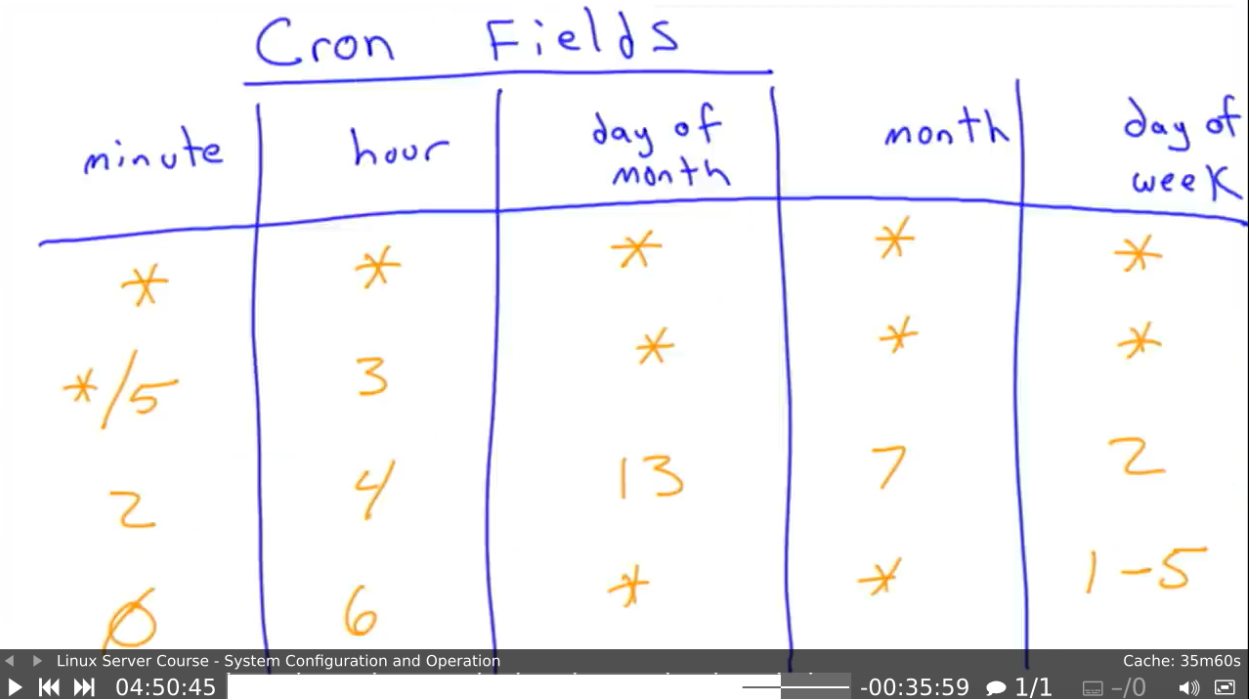 Cron Fields
minute hour day of month month day of week
* * * * *
*/5 3 * * *
2 4 13 7 2
0 6 * * 1-5
Linux Server Course - System Configuration and Operation Cache: 35m60s
04:50:45 -00:35:59 1/1 -/0